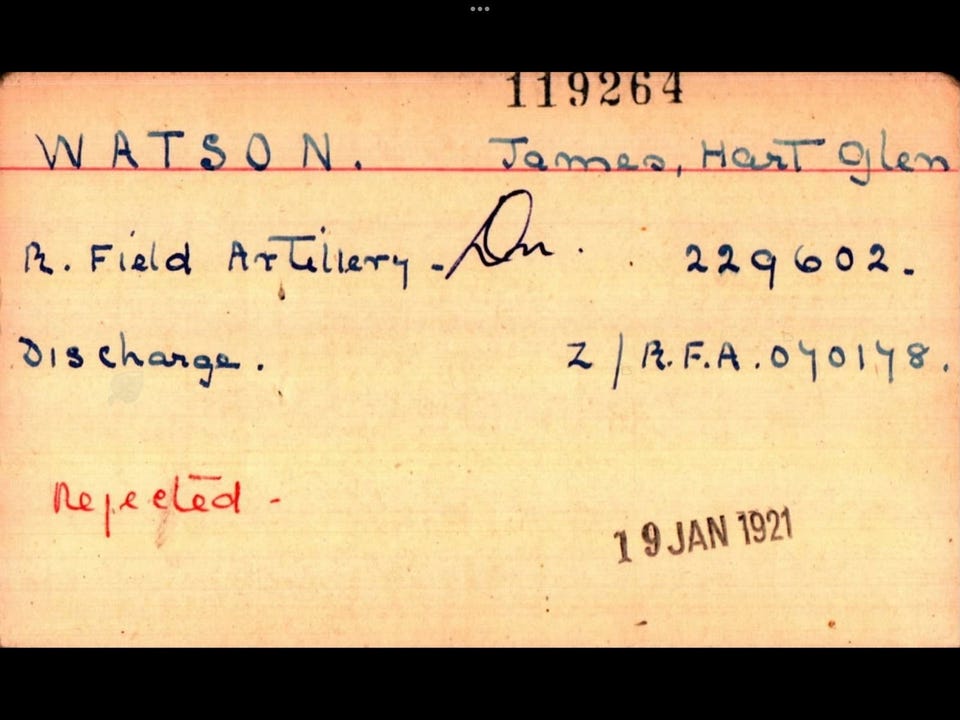 119264
WATSON. James, Hart Glen
R. Field Artillery - Dr. 229602.
Discharge. Z/R.F.A. 070178.
Rejected -
19 JAN 1921